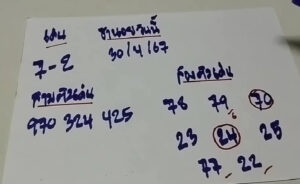 เด่น
ฐานอยู่วันนี้
30/4/67
7-2
สามตัวเด่น
970 324 425
สองตัวเด่น
78 79 70
23 24 25
77 22